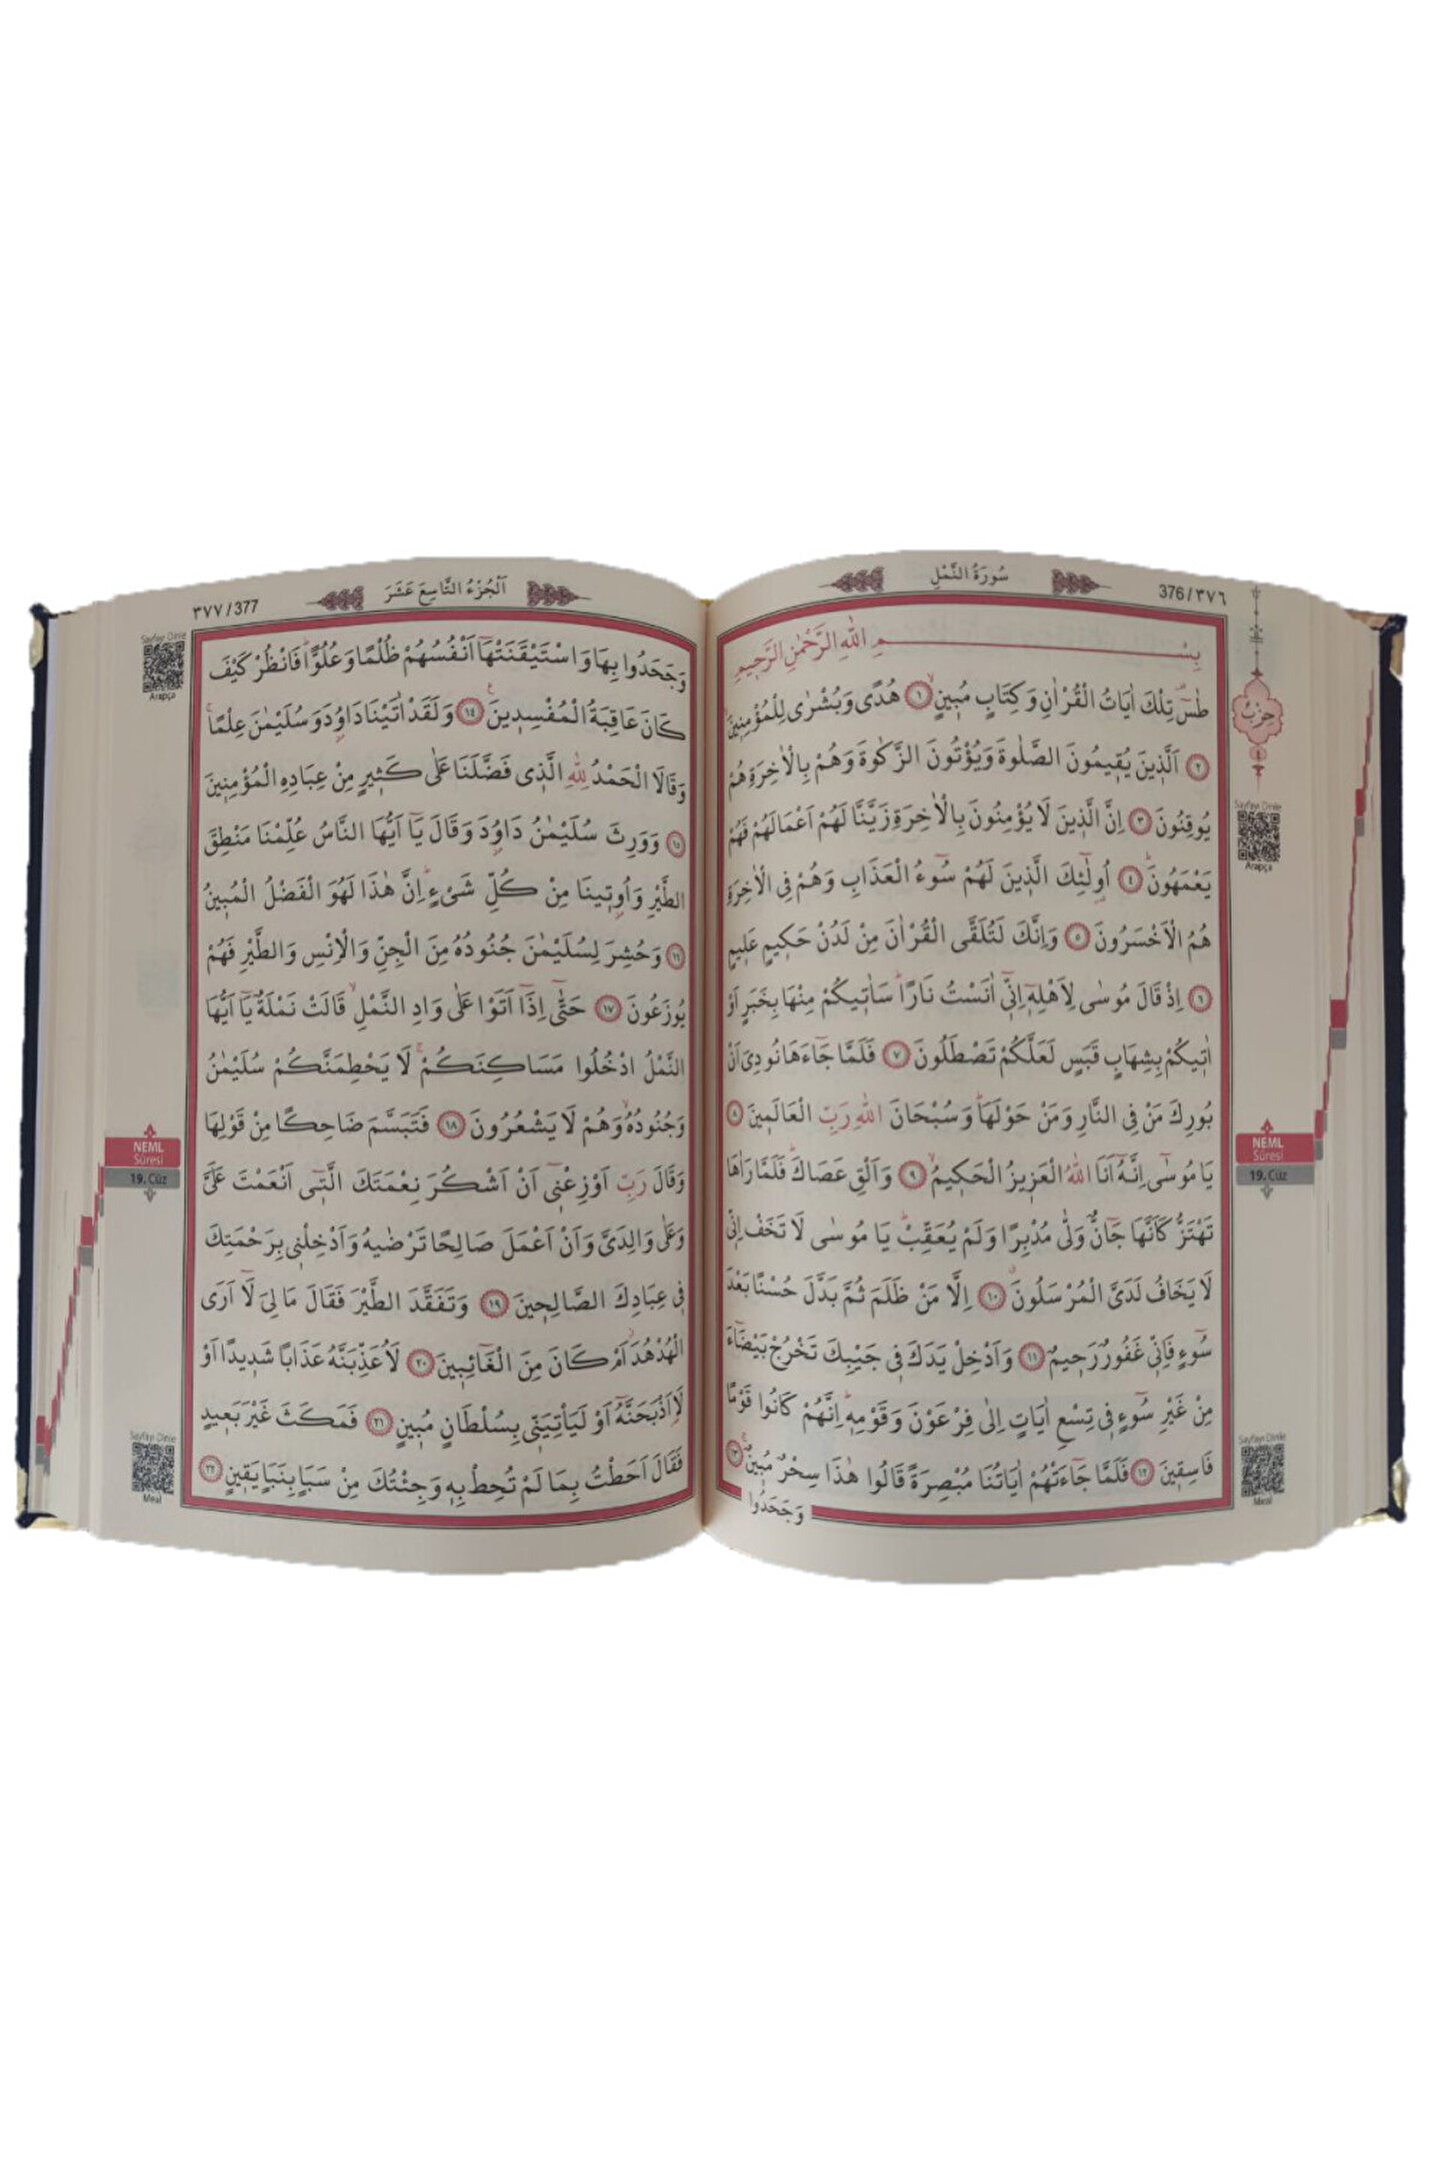 376/٣٧٦
سُورَةُ النَّمْلِ
بِسْمِ اللّٰهِ الرَّحْمٰنِ الرَّحٖيمِ
طٰسٓ تِلْكَ اٰيَاتُ الْقُرْاٰنِ وَكِتَابٍ مُبٖينٍ ١ هُدًى وَبُشْرٰى لِلْمُؤْمِنٖينَ
٢ اَلَّذٖينَ يُقٖيمُونَ الصَّلٰوةَ وَيُؤْتُونَ الزَّكٰوةَ وَهُمْ بِالْاٰخِرَةِ هُمْ
يُوقِنُونَ ٣ اِنَّ الَّذٖينَ لَا يُؤْمِنُونَ بِالْاٰخِرَةِ زَيَّنَّا لَهُمْ اَعْمَالَهُمْ فَهُمْ
يَعْمَهُونَ ٤ اُولٰٓئِكَ الَّذٖينَ لَهُمْ سُٓوءُ الْعَذَابِ وَهُمْ فِى الْاٰخِرَةِ
هُمُ الْاَخْسَرُونَ ٥ وَاِنَّكَ لَتُلَقَّى الْقُرْاٰنَ مِنْ لَدُنْ حَكٖيمٍ عَلٖيمٍ
٦ اِذْ قَالَ مُوسٰى لِاَهْلِهٖٓ اِنّٖٓى اٰنَسْتُ نَارًا سَاٰتٖيكُمْ مِنْهَا بِخَبَرٍ اَوْ
اٰتٖيكُمْ بِشِهَابٍ قَبَسٍ لَعَلَّكُمْ تَصْطَلُونَ ٧ فَلَمَّا جَٓاءَهَا نُودِىَ اَنْ
بُورِكَ مَنْ فِى النَّارِ وَمَنْ حَوْلَهَا وَسُبْحَانَ اللّٰهِ رَبِّ الْعَالَمٖينَ ٨
يَا مُوسٰٓى اِنَّهُٓ اَنَا اللّٰهُ الْعَزٖيزُ الْحَكٖيمُ ٩ وَاَلْقِ عَصَاكَ فَلَمَّا رَاٰهَا
تَهْتَزُّ كَاَنَّهَا جَٓانٌّ وَلّٰى مُدْبِرًا وَلَمْ يُعَقِّبْ يَا مُوسٰى لَا تَخَفْ اِنّٖى
لَا يَخَافُ لَدَىَّ الْمُرْسَلُونَ ١٠ اِلَّا مَنْ ظَلَمَ ثُمَّ بَدَّلَ حُسْنًا بَعْدَ
سُٓوءٍ فَاِنّٖى غَفُورٌ رَحٖيمٌ ١١ وَاَدْخِلْ يَدَكَ فٖى جَيْبِكَ تَخْرُجْ بَيْضَٓاءَ
مِنْ غَيْرِ سُٓوءٍ فٖى تِسْعِ اٰيَاتٍ اِلٰى فِرْعَوْنَ وَقَوْمِهٖ اِنَّهُمْ كَانُوا قَوْمًا
فَاسِقٖينَ ١٢ فَلَمَّا جَٓاءَتْهُمْ اٰيَاتُنَا مُبْصِرَةً قَالُوا هٰذَا سِحْرٌ مُبٖينٌ ١٣
وَجَحَدُوا
حِزْبٌ
٤
Sayfayı Dinle
Arapça
NEML
Sûresi
19. Cüz
Sayfayı Dinle
Meal
٣٧٧/377
اَلْجُزْءُ التَّاسِعَ عَشَرَ
وَجَحَدُوا بِهَا وَاسْتَيْقَنَتْهَٓا اَنْفُسُهُمْ ظُلْمًا وَعُلُوًّا فَانْظُرْ كَيْفَ
كَانَ عَاقِبَةُ الْمُفْسِدٖينَ ١٤ وَلَقَدْ اٰتَيْنَا دَاوُدَ وَسُلَيْمٰنَ عِلْمًا
وَقَالَا الْحَمْدُ لِلّٰهِ الَّذٖى فَضَّلَنَا عَلٰى كَثٖيرٍ مِنْ عِبَادِهِ الْمُؤْمِنٖينَ
١٥ وَوَرِثَ سُلَيْمٰنُ دَاوُدَ وَقَالَ يَٓا اَيُّهَا النَّاسُ عُلِّمْنَا مَنْطِقَ
الطَّيْرِ وَاُوتٖينَا مِنْ كُلِّ شَیْءٍ اِنَّ هٰذَا لَهُوَ الْفَضْلُ الْمُبٖينُ
١٦ وَحُشِرَ لِسُلَيْمٰنَ جُنُودُهُ مِنَ الْجِنِّ وَالْاِنْسِ وَالطَّيْرِ فَهُمْ
يُوزَعُونَ ١٧ حَتّٰٓى اِذَٓا اَتَوْا عَلٰى وَادِ النَّمْلِ قَالَتْ نَمْلَةٌ يَٓا اَيُّهَا
النَّمْلُ ادْخُلُوا مَسَاكِنَكُمْ لَا يَحْطِمَنَّكُمْ سُلَيْمٰنُ
وَجُنُودُهُ وَهُمْ لَا يَشْعُرُونَ ١٨ فَتَبَسَّمَ ضَاحِكًا مِنْ قَوْلِهَا
وَقَالَ رَبِّ اَوْزِعْنٖٓى اَنْ اَشْكُرَ نِعْمَتَكَ الَّتٖٓى اَنْعَمْتَ عَلَىَّ
وَعَلٰى وَالِدَىَّ وَاَنْ اَعْمَلَ صَالِحًا تَرْضٰيهُ وَاَدْخِلْنٖى بِرَحْمَتِكَ
فٖى عِبَادِكَ الصَّالِحٖينَ ١٩ وَتَفَقَّدَ الطَّيْرَ فَقَالَ مَا لِىَ لَٓا اَرَى
الْهُدْهُدَ اَمْ كَانَ مِنَ الْغَٓائِبٖينَ ٢٠ لَاُعَذِّبَنَّهُ عَذَابًا شَدٖيدًا اَوْ
لَاَاذْبَحَنَّهُٓ اَوْ لَيَاْتِيَنّٖى بِسُلْطَانٍ مُبٖينٍ ٢١ فَمَكَثَ غَيْرَ بَعٖيدٍ
فَقَالَ اَحَطْتُ بِمَا لَمْ تُحِطْ بِهٖ وَجِئْتُكَ مِنْ سَبَاٍ بِنَبَاٍ يَقٖينٍ ٢٢
Sayfayı Dinle
Arapça
NEML
Sûresi
19. Cüz
Sayfayı Dinle
Meal